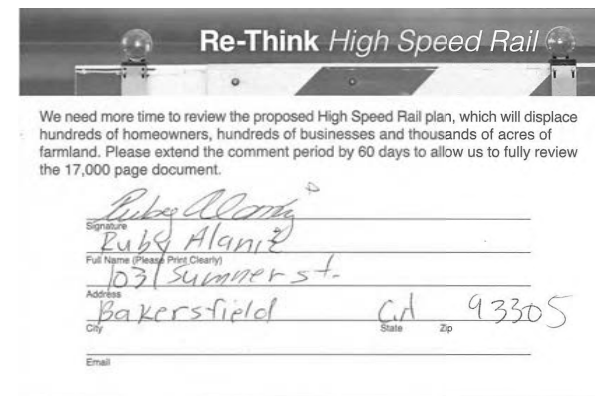 Re-Think High Speed Rail
We need more time to review the proposed High Speed Rail plan, which will displace
hundreds of homeowners, hundreds of businesses and thousands of acres of
farmland. Please extend the comment period by 60 days to allow us to fully review
the 17,000 page document.
Ruby Alaniz
Signature
Ruby Alaniz
Full Name (Please Print Clearly)
1031 Sumner st.
Address
Bakersfield CA 93305
City State Zip
Email